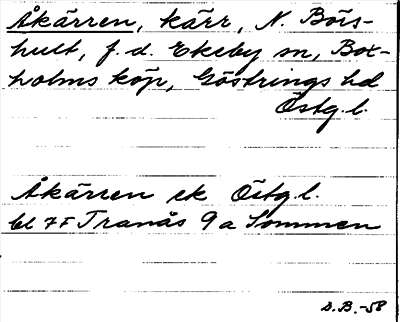 Åkärren, kärr, N. Börs-
hult, f.d. Ekeby sn, Box-
holms köp, Göstrings hd
Östg.l.
Åkärren ek Östg.l.
bl 7F Tranås 9a Sommen
D.B.-58